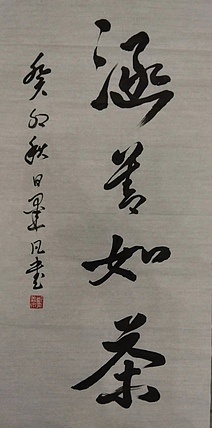 涵养如茶
癸卯秋日墨凡书